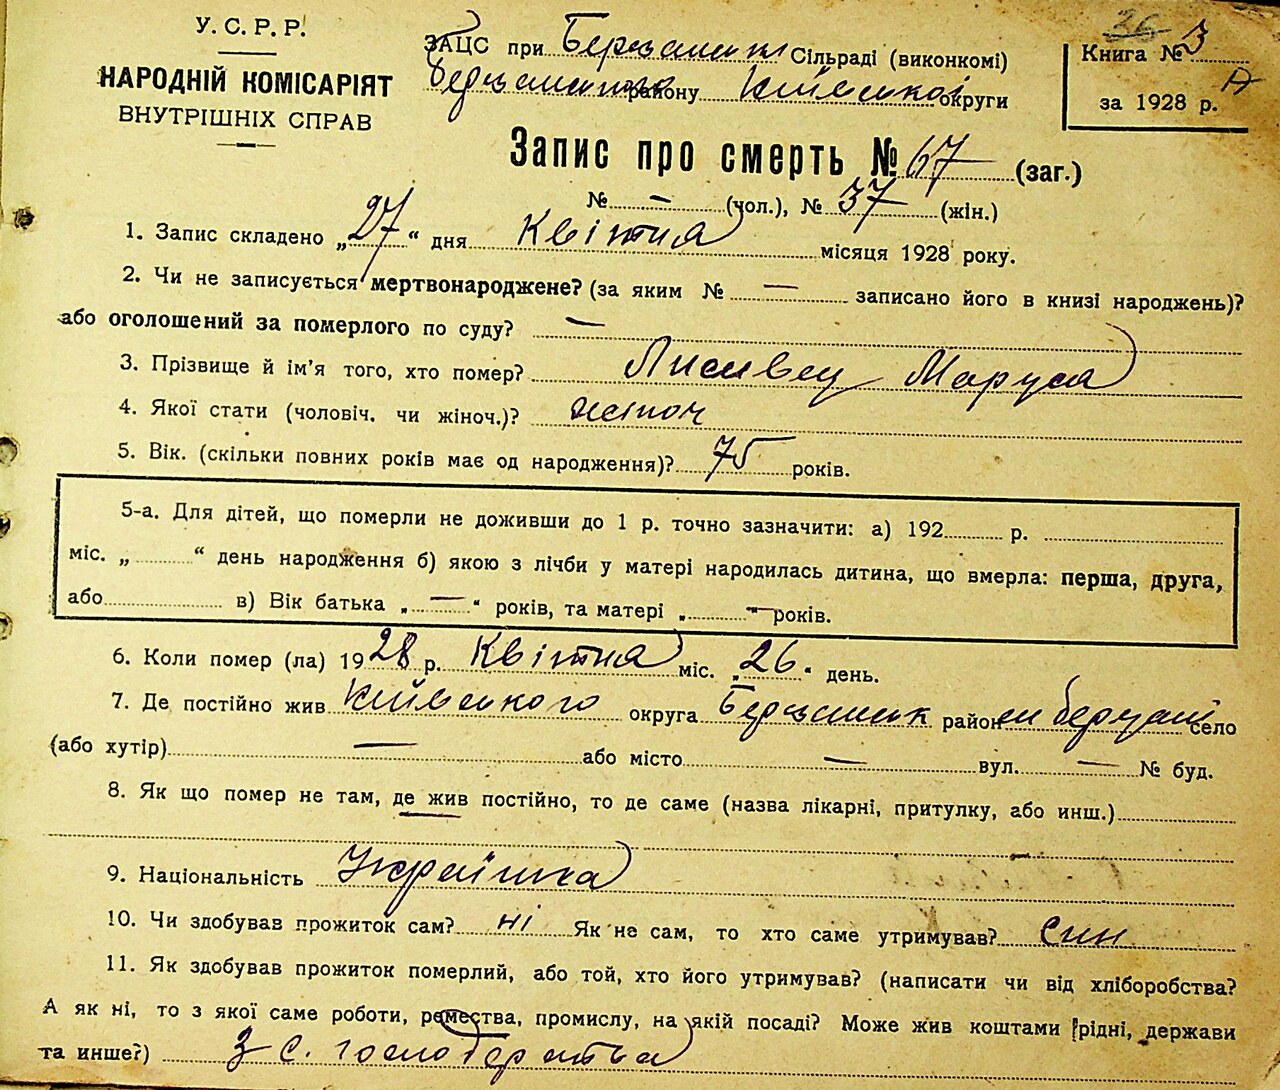 У.С.Р.Р.
НАРОДНІЙ КОМІСАРІЯТ
ВНУТРІШНІХ СПРАВ
ЗАЦС при Березанськ Сільраді (виконкомі)
району Київської округи
26
Книга № 3
за 1928 р.
Запис про смерть № 67 (заг.)
№ — (чол.), № 37 (жін.)
1. Запис складено „27“ дня Квітня місяця 1928 року.
2. Чи не записується мертвонароджене? (за яким № — записано його в книзі народжень)?
або оголошений за померлого по суду? —
3. Прізвище й ім'я того, хто помер? Лисивец Маруся
4. Якої стати (чоловіч. чи жіноч.)? жіноч
5. Вік. (скільки повних років має од народження)? 75 років.
5-а. Для дітей, що померли не доживши до 1 р. точно зазначити: а) 192 р.
міс. „ “ день народження б) якою з лічби у матері народилась дитина, що вмерла: перша, друга,
або в) Вік батька „—“ років, та матері „—“ років.
6. Коли помер (ла) 1928 р. Квітня міс. „26“ день.
7. Де постійно жив Київського округа Березанськ район м Березань село
(або хутір) — або місто — вул. — № буд.
8. Як що помер не там, де жив постійно, то де саме (назва лікарні, притулку, або инш.)
—
9. Національність Українка
10. Чи здобував прожиток сам? ні Як не сам, то хто саме утримував? син
11. Як здобував прожиток померлий, або той, хто його утримував? (написати чи від хліборобства?
А як ні, то з якої саме роботи, ремества, промислу, на якій посаді? Може жив коштами рідні, держави
та инше?) З с. господарства